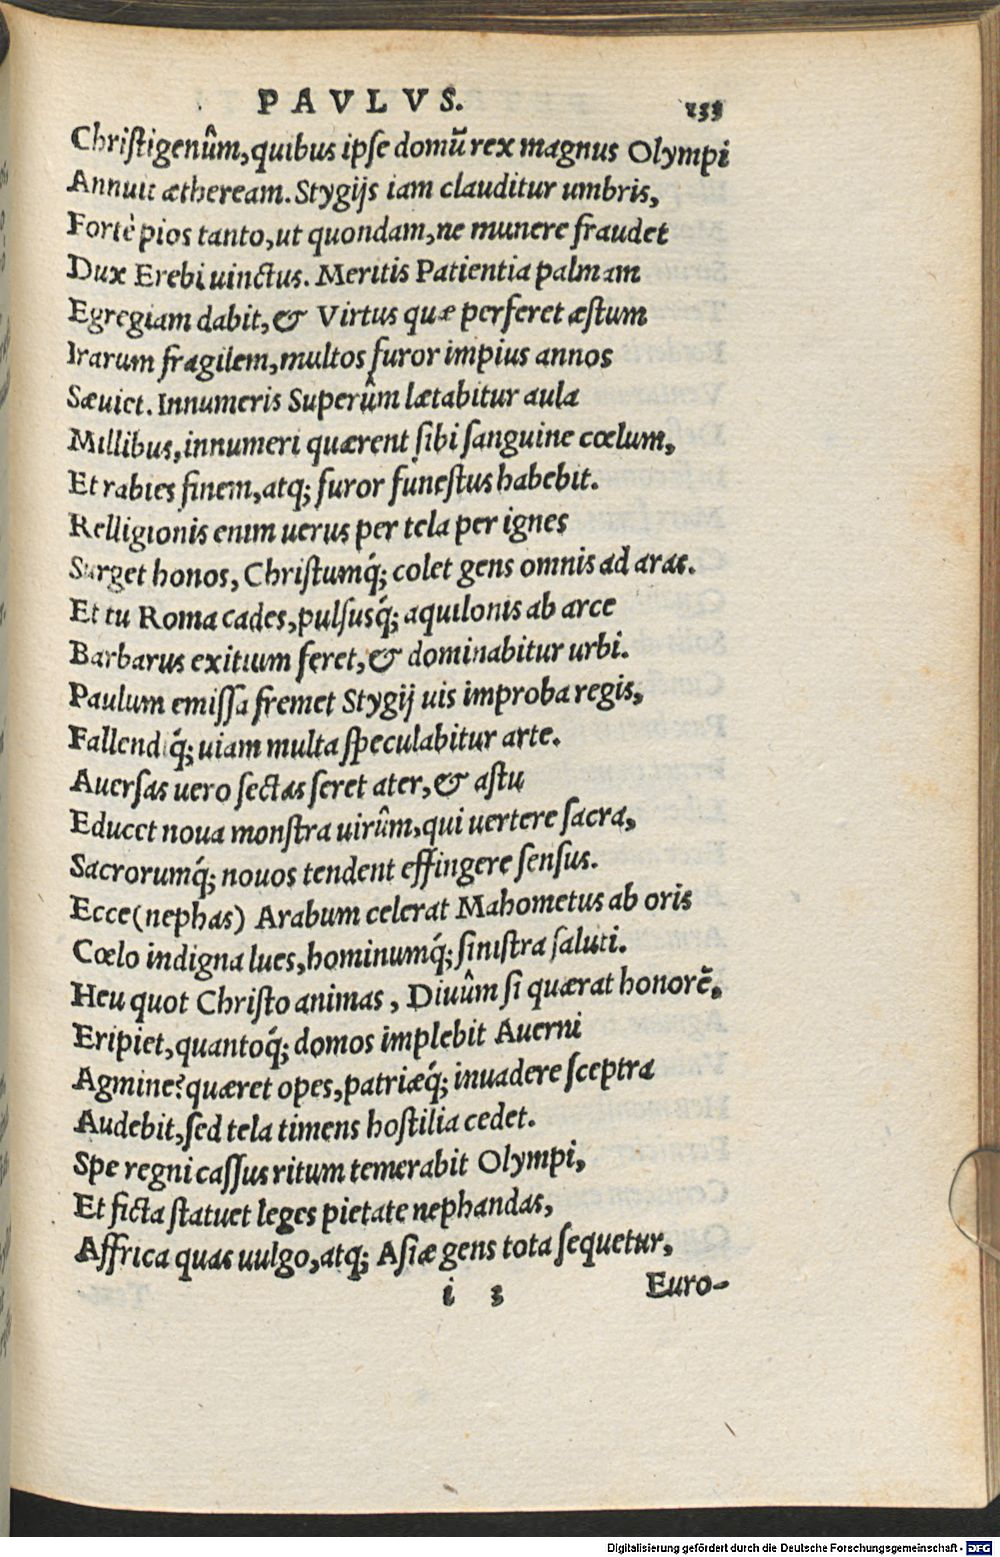 PAVLVS. 133
Chriſtigenûm, quibus ipſe domū rex magnus Olympi
Annuit ætheream. Stygijs iam clauditur umbris,
Fortè pios tanto, ut quondam, ne munere fraudet
Dux Erebi uinctus. Meritis Patientia palmam
Egregiam dabit, & Virtus quæ perferet æſtum
Irarum fragilem, multos furor impius annos
Sæuiet. Innumeris Superûm lætabitur aula
Millibus, innumeri quærent ſibi ſanguine cœlum,
Et rabies finem, atq; furor funeſtus habebit.
Relligionis enim uerus per tela per ignes
Surget honos, Chriſtumq́; colet gens omnis ad aras.
Et tu Roma cades, pulſusq́; aquilonis ab arce
Barbarus exitium feret, & dominabitur urbi.
Paulum emiſſa fremet Stygij uis improba regis,
Fallendiq́; uiam multa ſpeculabitur arte.
Auerſas uero ſectas ſeret ater, & aſtu
Educet noua monſtra uirûm, qui uertere ſacra,
Sacrorumq́; nouos tendent effingere ſenſus.
Ecce (nephas) Arabum celerat Mahometus ab oris
Cœlo indigna lues, hominumq́; ſiniſtra ſaluti.
Heu quot Chriſto animas, Diuûm ſi quærat honorē,
Eripiet, quantoq́; domos implebit Auerni
Agmine? quæret opes, patriæq́; inuadere ſceptra
Audebit, ſed tela timens hoſtilia cedet.
Spe regni caſſus ritum temerabit Olympi,
Et ficta ſtatuet leges pietate nephandas,
Affrica quas uulgo, atq; Aſiæ gens tota ſequetur,
i 3 Euro-
Digitalisierung gefördert durch die Deutsche Forschungsgemeinschaft - DFG